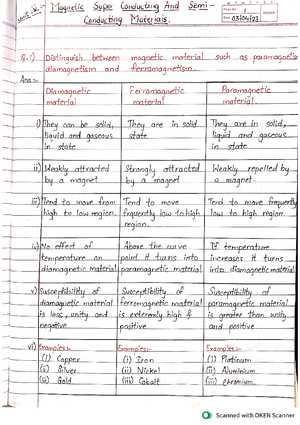 Unit-IV
Magnetic Super Conducting And Semi-
Conducting Materials.
Page No. 1
Date 03/04/23
Q.1) Distinguish between magnetic material such as paramagnetic
diamagnetism and ferromagnetism
Ans:-
Diamagnetic material
Ferromagnetic material
Paramagnetic material.
i) They can be solid, liquid and gaseous in state
They are in solid state
They are in solid, liquid and gaseous in state.
ii) Weakly attracted by a magnet.
Strongly attracted by a magnet
Weakly repelled by a magnet.
iii) Tend to move from high to low region.
Tend to move frquently low to high region.
Tend to move frequently low to high region.
iv) No effect of temperature on diamagnetic material
Above the curve point it turns into paramagnetic material
If temperature increases it turns into diamagnetic material
v) Susceptibility of diamagnetic material is loss, unity and negative
Susceptibility of ferromagnetic material is extermly high & positive
Susceptibility of paramagnetic material is greater than unity and positive
vi) Examples:-
(i) Copper
(ii) Silver
(iii) Gold
Examples:-
(i) Iron
(ii) Nickel
(iii) Cobalt
Examples:-
(i) Platinum
(ii) Aluminium
(iii) Chromium.
Scanned with OKEN Scanner